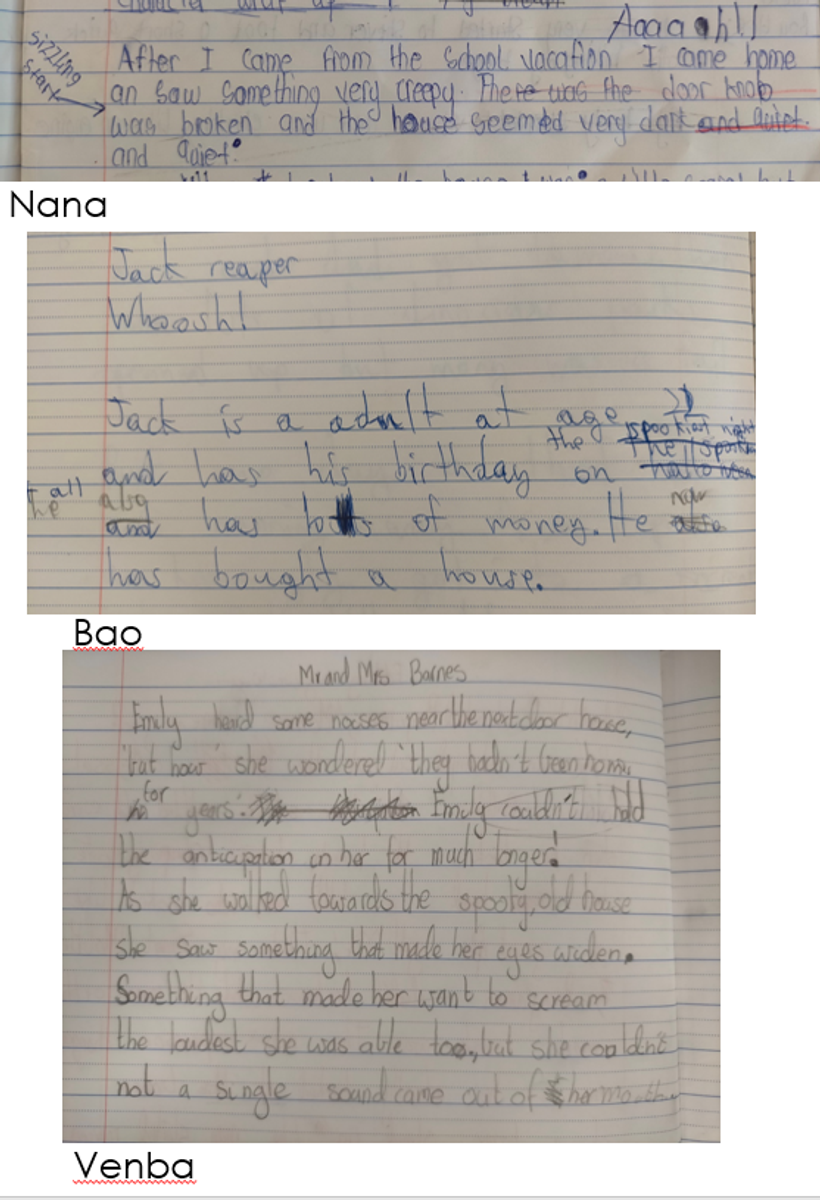 Aaaaah!!
sizzling
start
After I came from the School vacation. I came home
an saw something very creepy. There was the door knob
was broken and the house seemed very dark and quiet.
and quiet.
Nana
Jack reaper
Whoosh!
Jack is a adult at age
and has his birthday on the spookiest night
all
the
also
and has lots of money. He now
has bought a house.
Bao
Mr and Mrs Barnes
Emily heard some noises near the next door house,
'but how' she wondered 'they hadn't been home
for years'. Emily couldn't hold
the anticipation in her for much longer!
As she walked towards the spooky, old house
she saw something that made her eyes widen.
Something that made her want to scream
the loudest she was able too, but she couldn't
not a single sound came out of her mouth
Venba